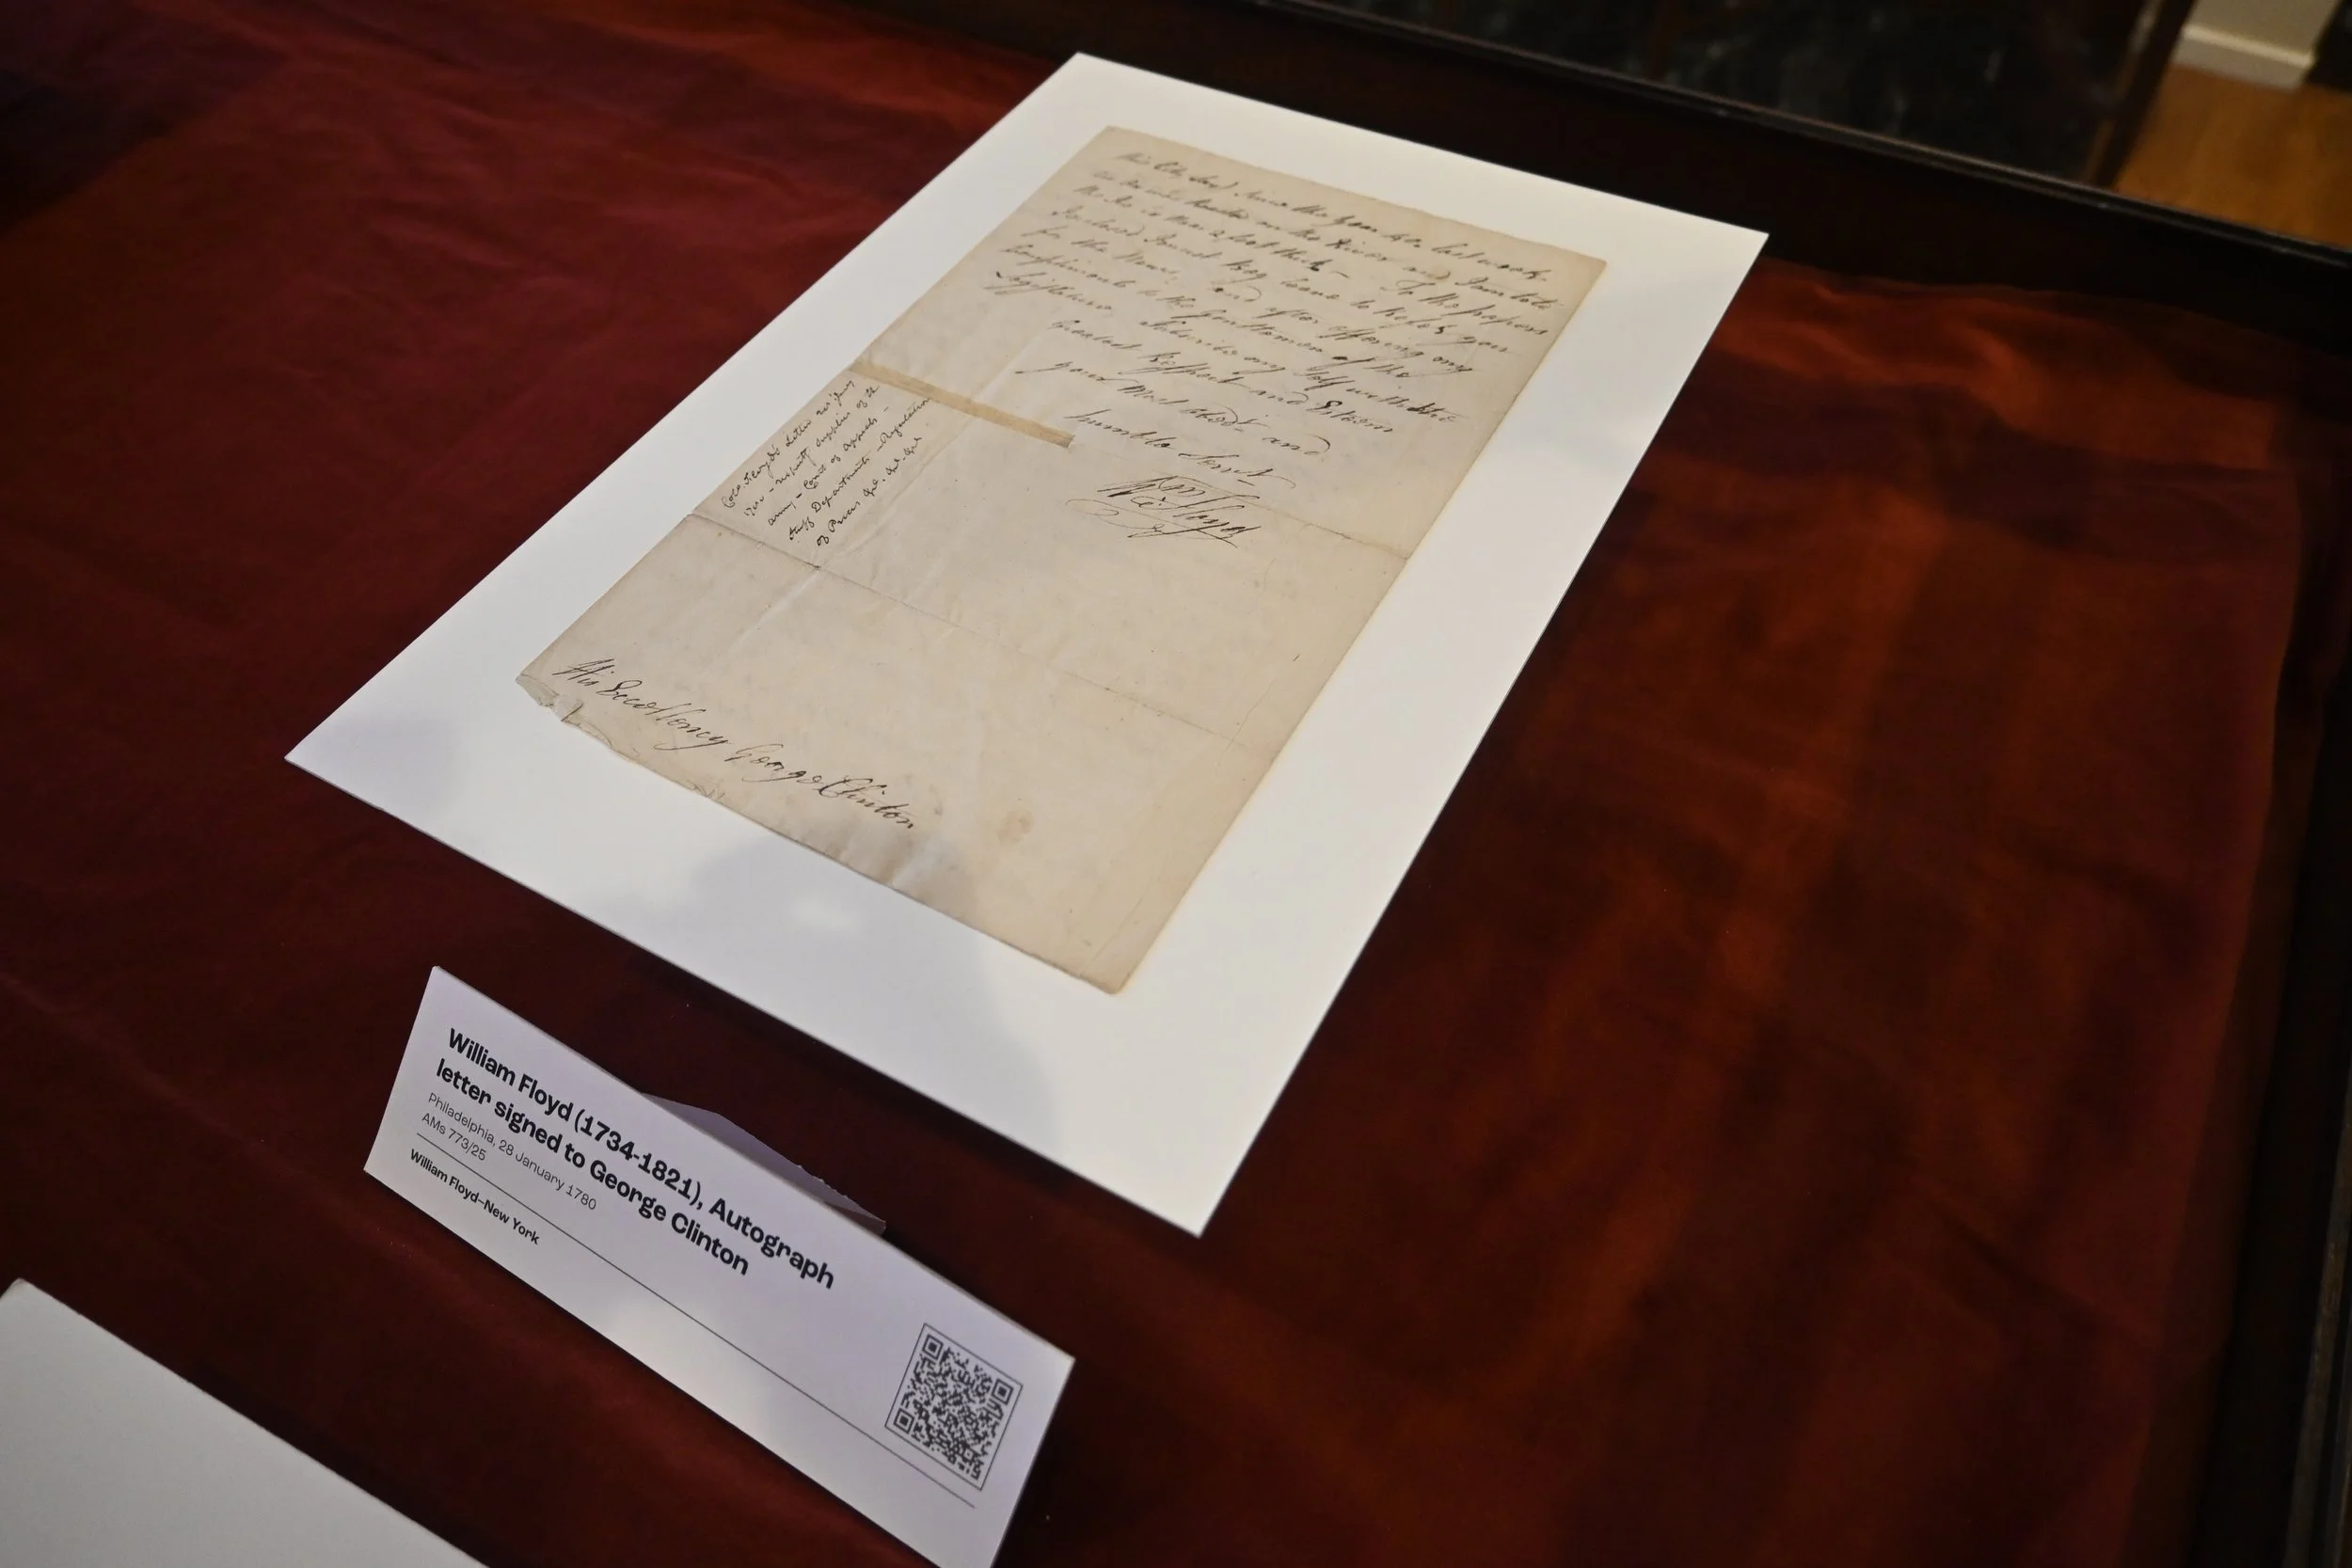 the Ice is Near 2 foot thick — To the papers
Inclosed I must Beg leave to Refer you
for the News, and after offering my
Compliments to the Gentlemen of the
Legislature, Subscribe my Self with the
Greatest Respect and Esteem
your Most Obedt and
humble Servt
Wm Floyd
Colo. Floyd's Letter
army — Court of Appeals —
Staff Departments — Regulation
of Prices &c. &c. &c.
His Excellency George Clinton
William Floyd (1734-1821), Autograph
letter signed to George Clinton
Philadelphia, 28 January 1780
AMs 773/25
William Floyd–New York